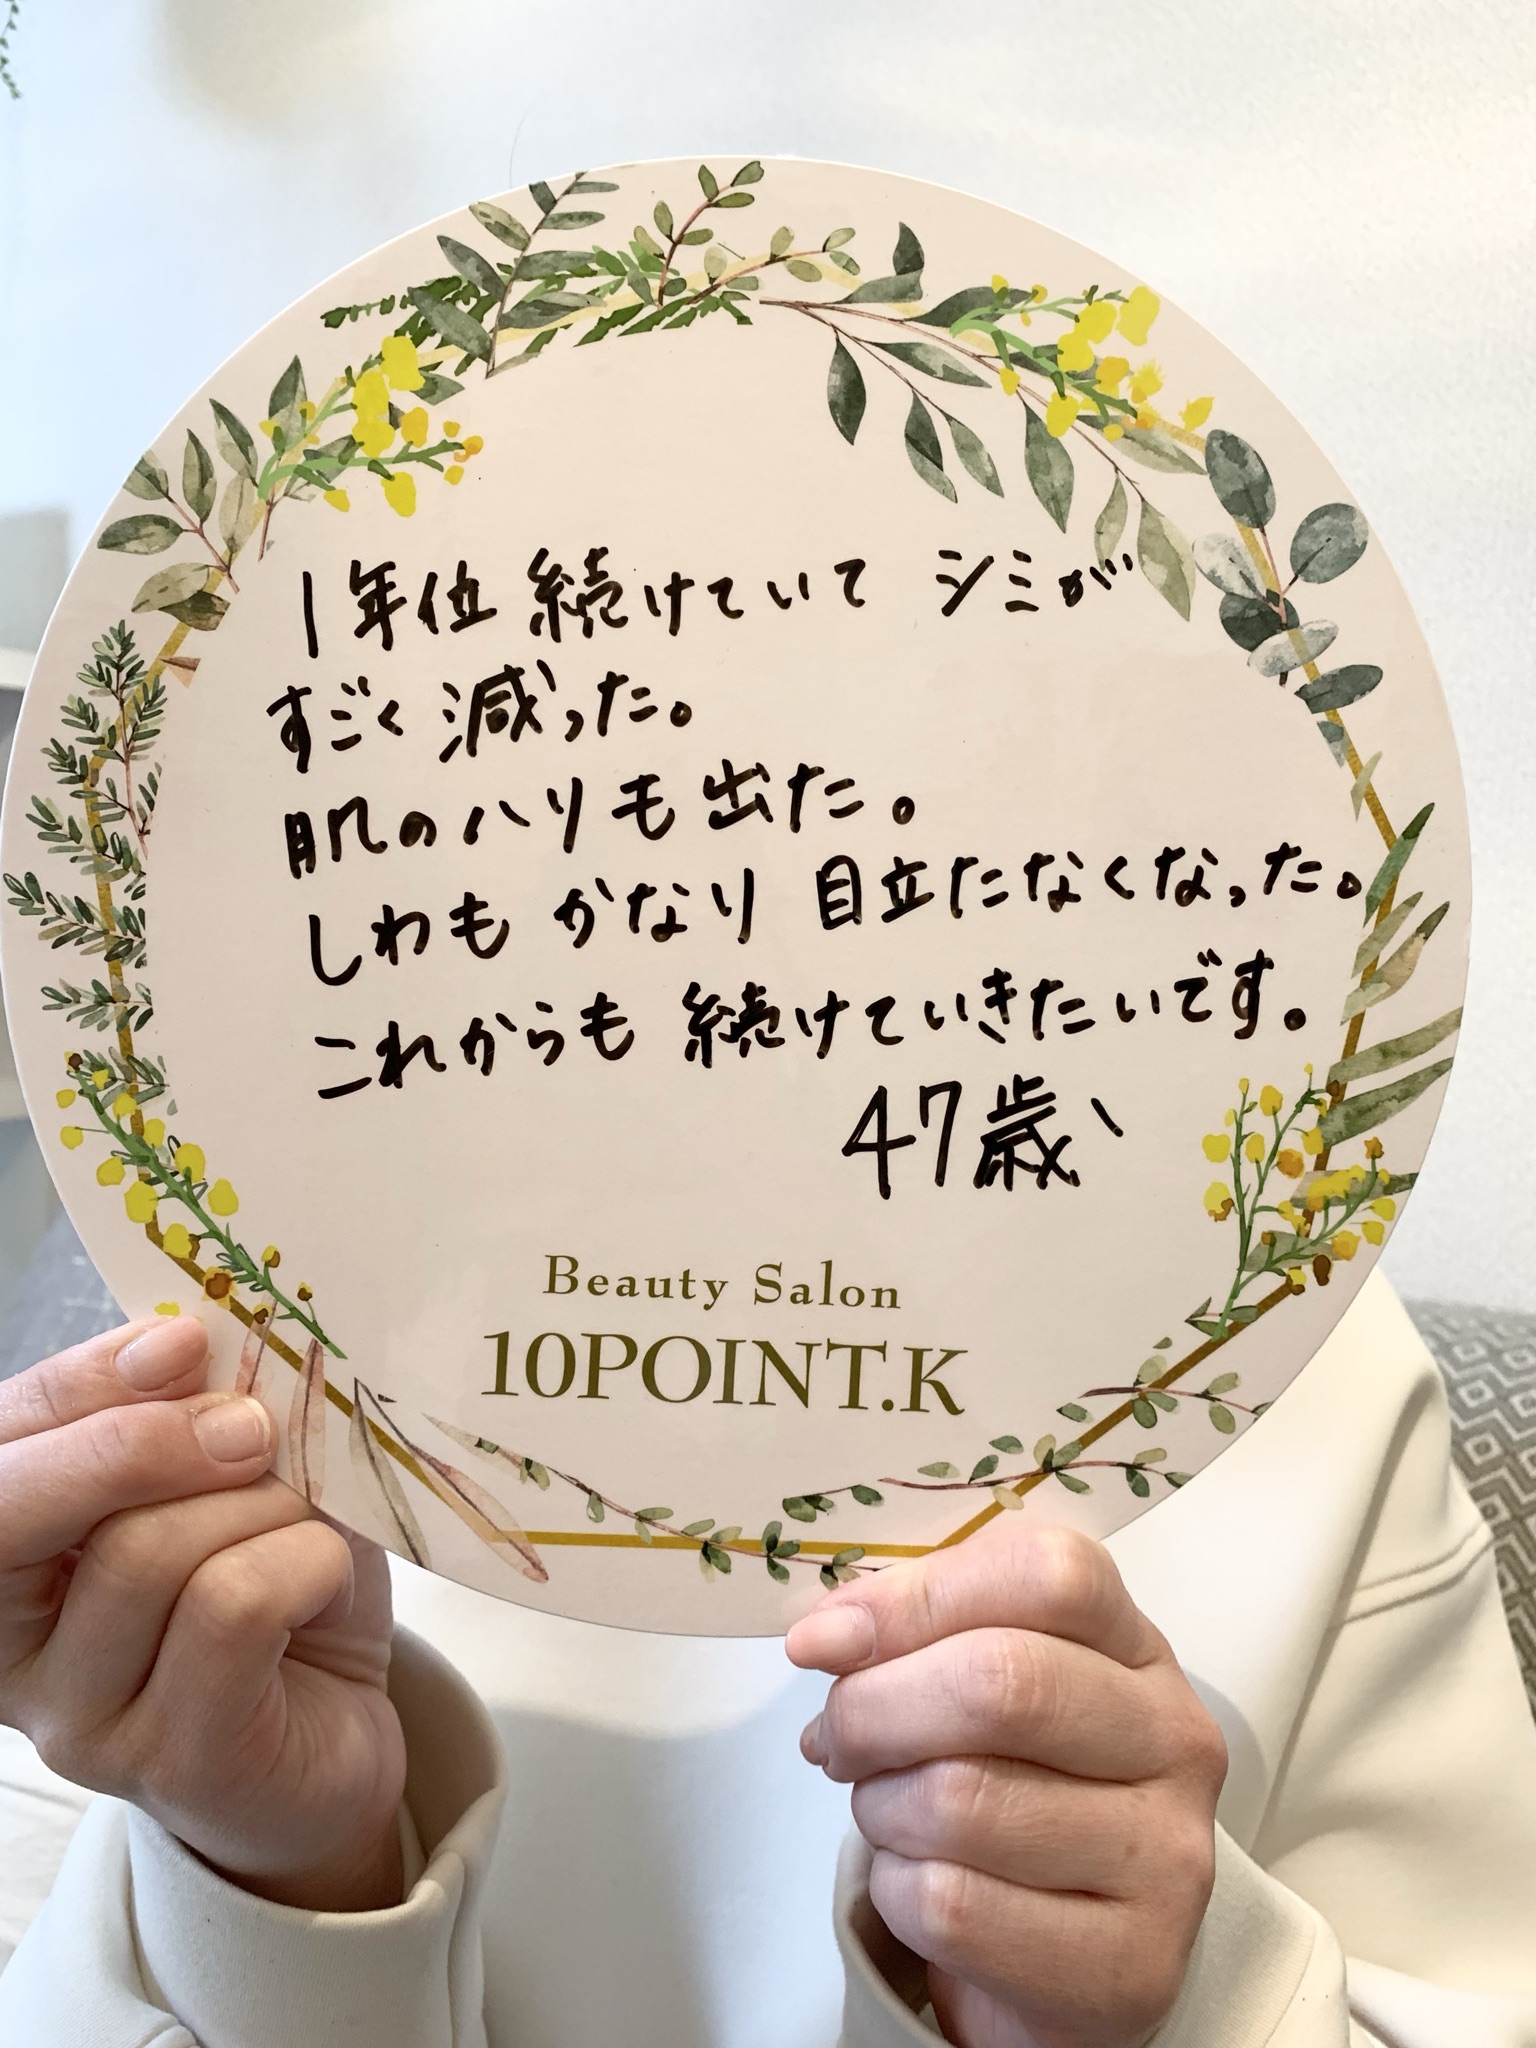 1年位 続けていて シミが
すごく減った。
肌のハリも出た。
しわも かなり 目立たなくなった。
これからも 続けていきたいです。
47歳、
Beauty Salon
10POINT.K